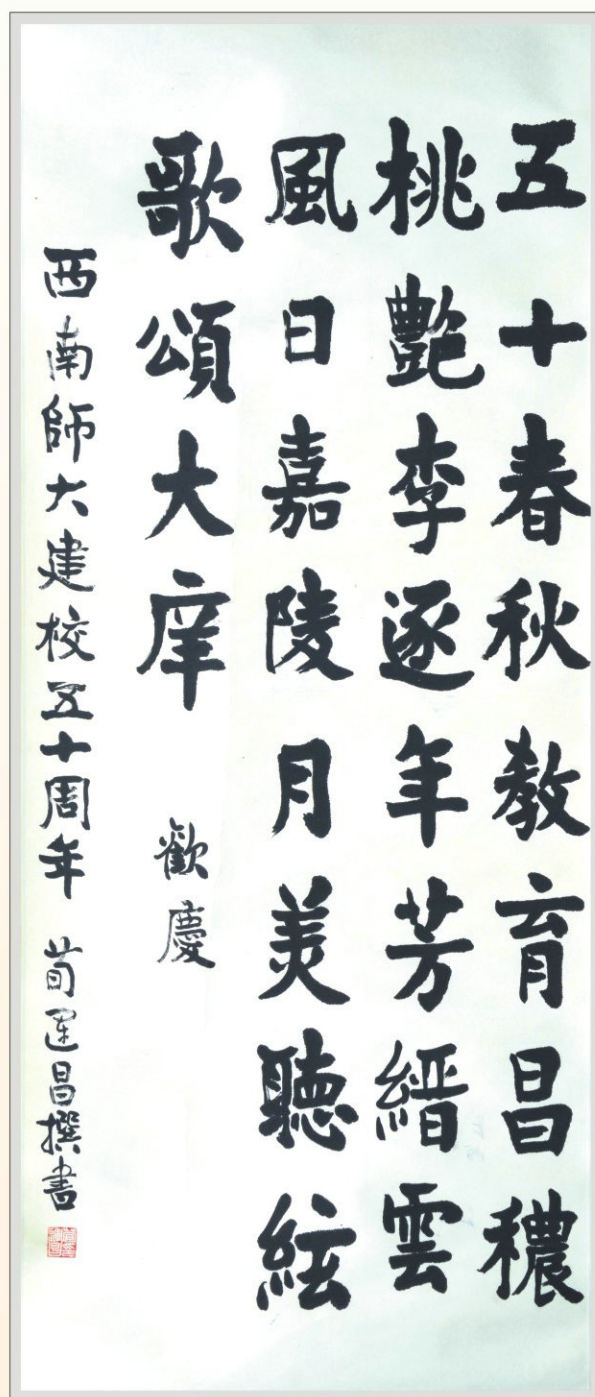 五十春秋教育昌穠
桃艷李逐年芳縉雲
風日嘉陵月美聽絃
歌頌大庠 歡慶
西南師大建校五十周年 荀運昌撰書